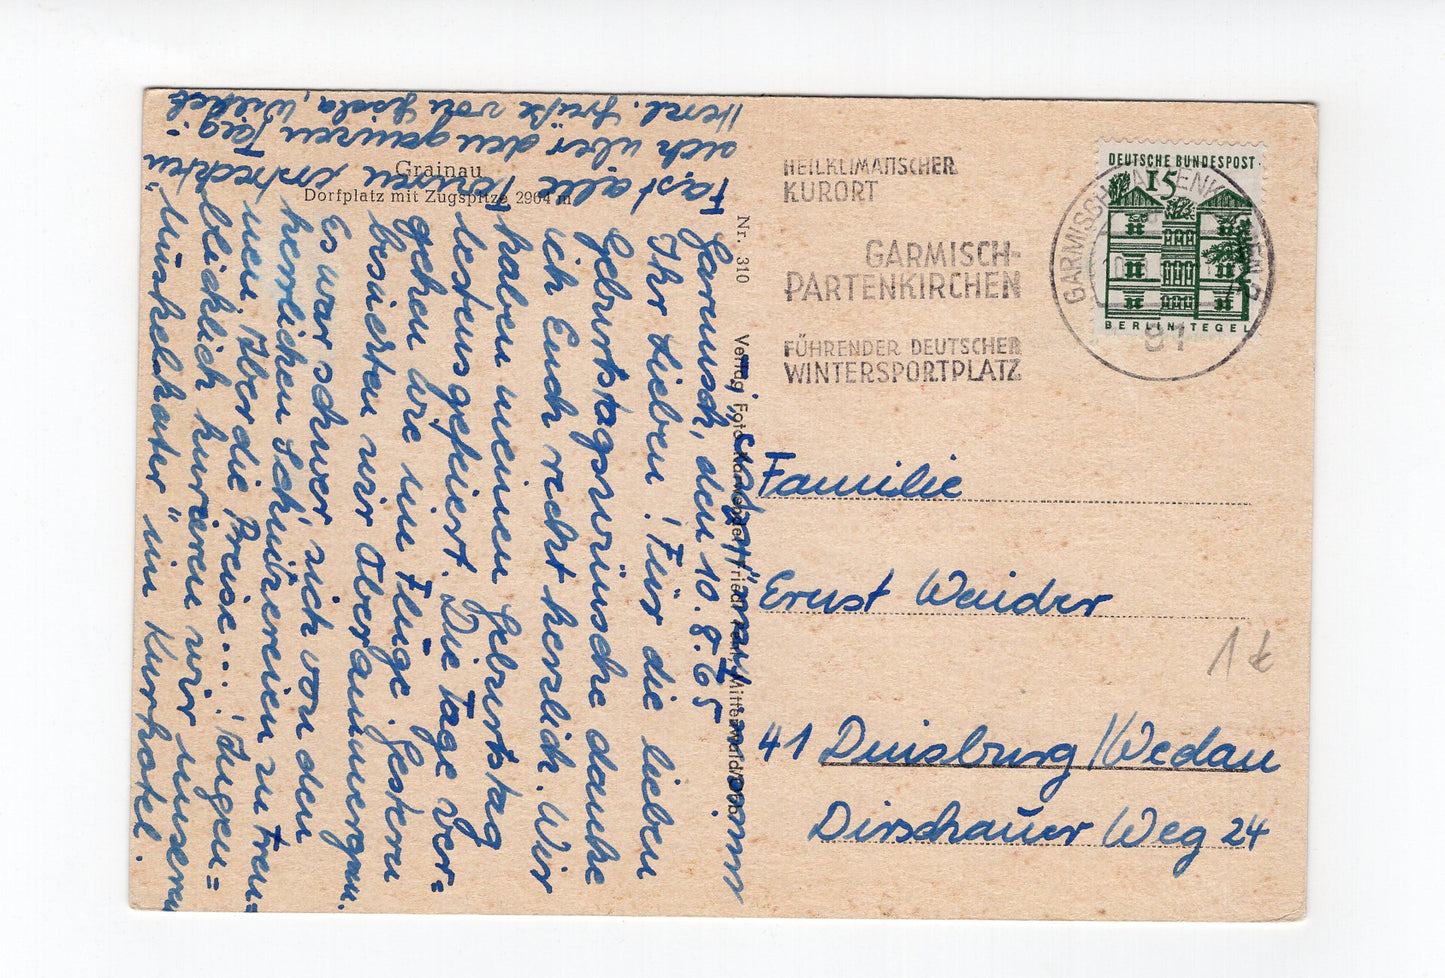 Grainau
Dorfplatz mit Zugspitze 2964 m
Nr. 310
HEILKLIMATISCHER
KURORT
GARMISCH-
PARTENKIRCHEN
FÜHRENDER DEUTSCHER
WINTERSPORTPLATZ
DEUTSCHE BUNDESPOST
15
BERLIN-TEGEL
GARMISCH-PARTENKIRCHEN
81
Garmisch, den 10.8.65
Ihr Lieben! Für die lieben
Geburtstagswünsche danke
ich Euch recht herzlich. Wir
haben meinen Geburtstag
bestens gefeiert. Die Tage ver=
gehen wie im Fluge. Gestern
besuchten wir Oberammergau.
Es war schwer, sich von den
herrlichen Schnitzereien zu tren=
nen. Aber die Preise... ! Augen=
blicklich kurieren wir unseren
"Muskelkater" im Kurhotel.
Fast alle Touren
sich über den ganzen Tag.
Herzl. Grüße von Gisela, Willi
Familie
Ernst Weider
41 Duisburg/Wedau
Dirschauer Weg 24
1 €